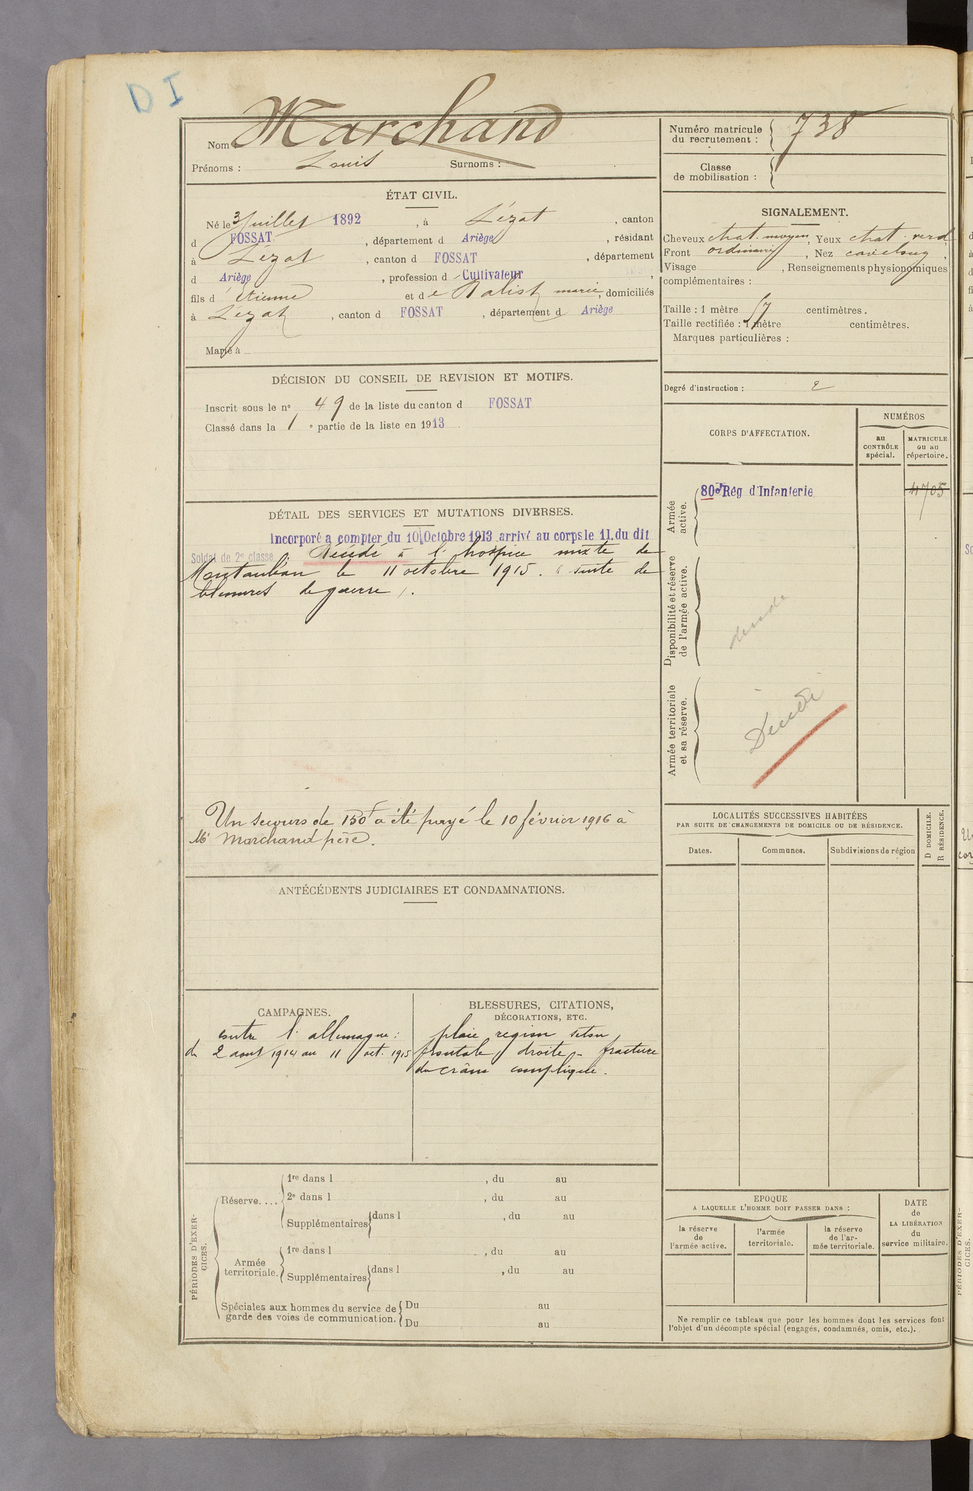 D I
Nom Marchand
Prénoms : Louis Surnoms :
Numéro matricule
du recrutement : 738
Classe
de mobilisation :
ÉTAT CIVIL.
Né le 3 Juillet 1892, à Lézat, canton
d FOSSAT, département d Ariège, résidant
à Lézat, canton d FOSSAT, département
d Ariège, profession d Cultivateur,
fils d Etienne et d e Balist marie, domiciliés
à Lézat, canton d FOSSAT, département d Ariège
Marié à
SIGNALEMENT.
Cheveux chat. moyen, Yeux chat. verd
Front ordinaire, Nez cave long,
Visage , Renseignements physionomiques
complémentaires :
Taille : 1 mètre 57 centimètres.
Taille rectifiée : 1 mètre centimètres.
Marques particulières :
Degré d'instruction : 2
DÉCISION DU CONSEIL DE REVISION ET MOTIFS.
Inscrit sous le n° 49 de la liste du canton d FOSSAT
Classé dans la 1 e partie de la liste en 1913
DÉTAIL DES SERVICES ET MUTATIONS DIVERSES.
Incorporé a compter du 10 Octobre 1913 arrivé au corps le 11 du dit
Soldat de 2e classe Décédé à l'hospice mixte de
Montauban le 11 octobre 1915. (suite de
blessures de guerre).
Un secours de 150f a été payé le 10 février 1916 à
Mr Marchand père.
CORPS D'AFFECTATION.
NUMÉROS
au
CONTRÔLE
spécial.
MATRICULE
ou au
répertoire.
Armée
active.
80e Rég d'Infanterie
4705
Disponibilité et réserve
de l'armée active.
décédé
Armée territoriale
et sa réserve.
Décédé
LOCALITÉS SUCCESSIVES HABITÉES
PAR SUITE DE CHANGEMENTS DE DOMICILE OU DE RÉSIDENCE.
Dates.
Communes.
Subdivisions de région
D DOMICILE.
R RÉSIDENCE.
ANTÉCÉDENTS JUDICIAIRES ET CONDAMNATIONS.
CAMPAGNES.
contre l'allemagne :
du 2 aout 1914 au 11 oct. 1915
BLESSURES, CITATIONS,
DÉCORATIONS, ETC.
plaie region seton
frontale droite - fracture
du crâne compliquée.
PÉRIODES D'EXER-
CICES.
Réserve....
1re dans l , du au
2e dans l , du au
Supplémentaires dans l , du au
Armée
territoriale.
1re dans l , du au
Supplémentaires dans l , du au
Spéciales aux hommes du service de
garde des voies de communication.
Du au
Du au
EPOQUE
A LAQUELLE L'HOMME DOIT PASSER DANS :
la réserve
de
l'armée active.
l'armée
territoriale.
la réserve
de l'ar-
mée territoriale.
DATE
de
LA LIBÉRATION
du
service militaire.
Ne remplir ce tableau que pour les hommes dont les services font
l'objet d'un décompte spécial (engagés, condamnés, omis, etc.).